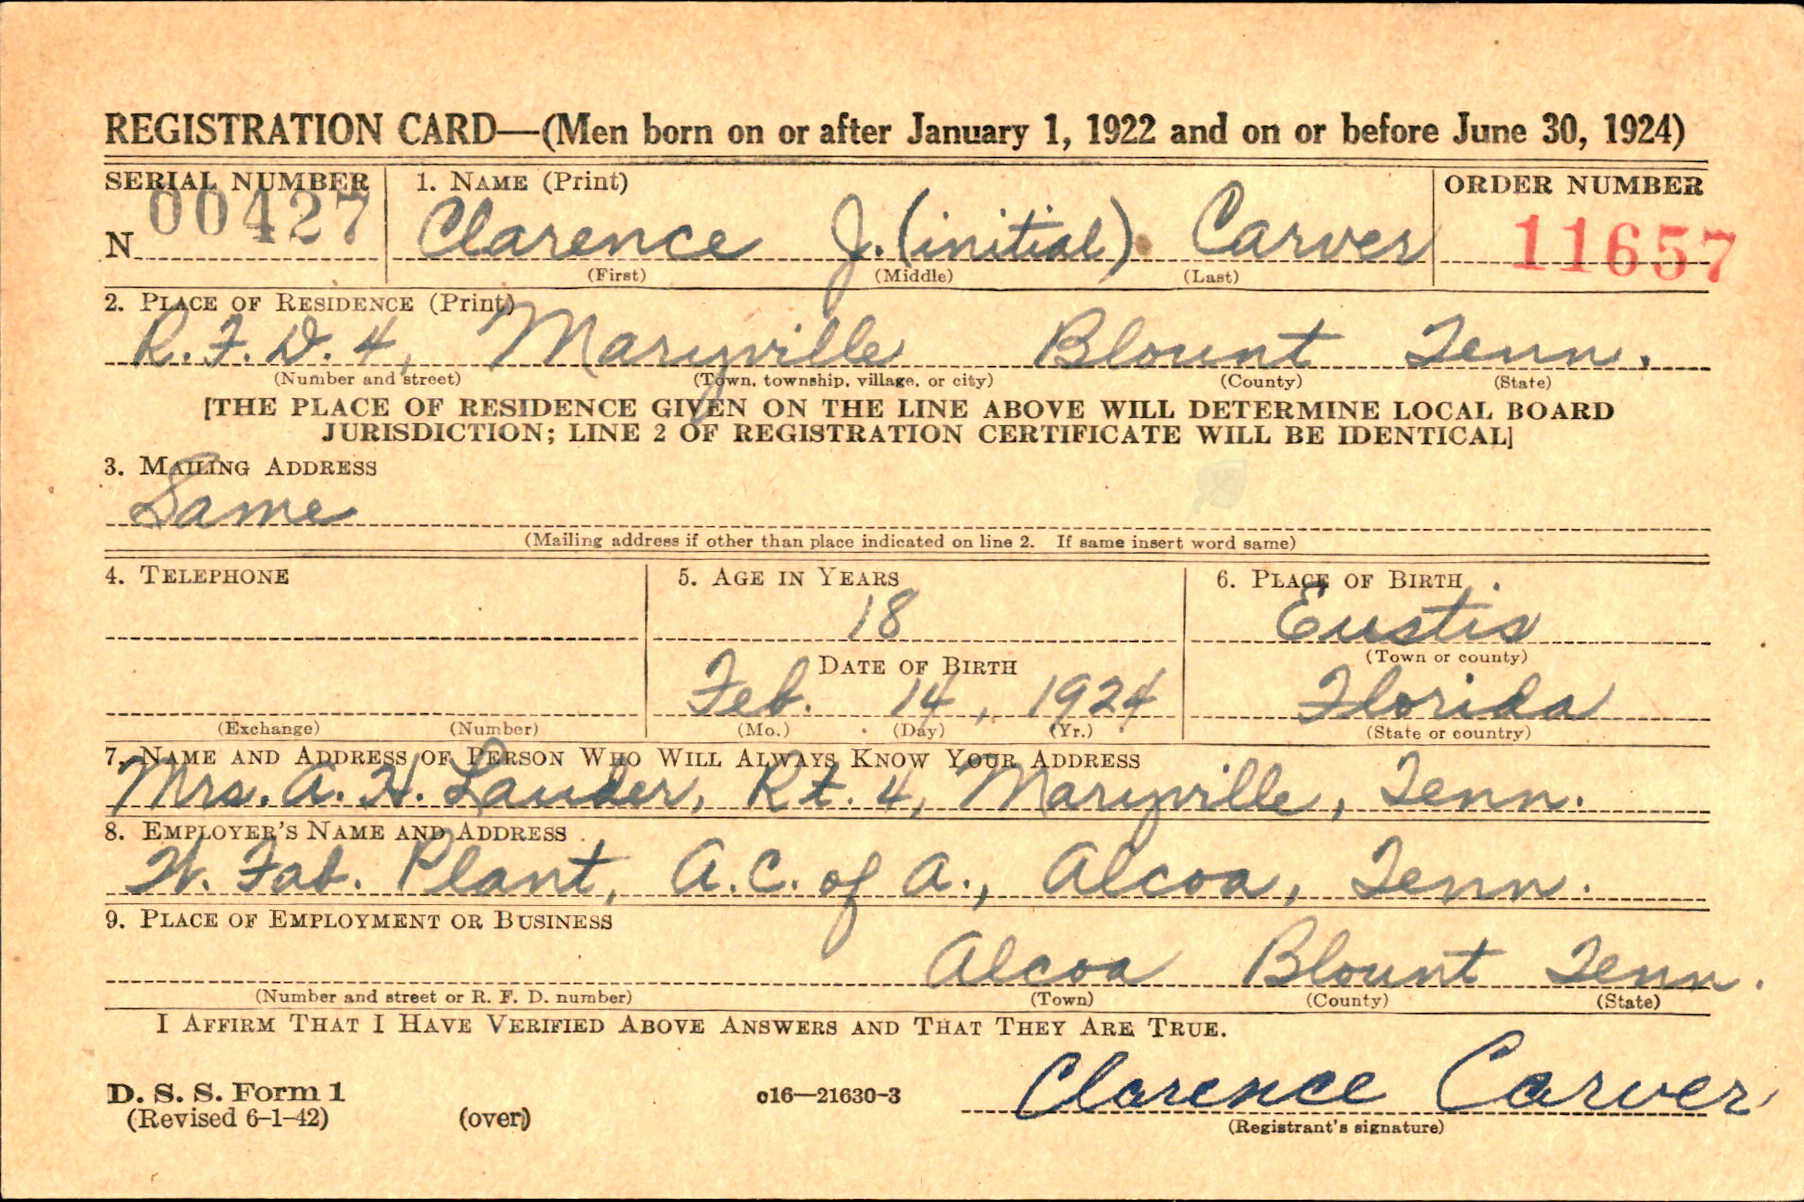 REGISTRATION CARD—(Men born on or after January 1, 1922 and on or before June 30, 1924)
SERIAL NUMBER 1. NAME (Print) ORDER NUMBER
N 00427 Clarence J. (initial) Carver 11657
(First) (Middle) (Last)
2. PLACE OF RESIDENCE (Print)
R.F.D. 4, Maryville Blount Tenn.
(Number and street) (Town, township, village, or city) (County) (State)
[THE PLACE OF RESIDENCE GIVEN ON THE LINE ABOVE WILL DETERMINE LOCAL BOARD
JURISDICTION; LINE 2 OF REGISTRATION CERTIFICATE WILL BE IDENTICAL]
3. MAILING ADDRESS
Same
(Mailing address if other than place indicated on line 2. If same insert word same)
4. TELEPHONE 5. AGE IN YEARS 6. PLACE OF BIRTH
18 Eustis
DATE OF BIRTH (Town or county)
Feb. 14, 1924 Florida
(Exchange) (Number) (Mo.) (Day) (Yr.) (State or country)
7. NAME AND ADDRESS OF PERSON WHO WILL ALWAYS KNOW YOUR ADDRESS
Mrs. A. H. Lauder, Rt. 4, Maryville, Tenn.
8. EMPLOYER'S NAME AND ADDRESS
W. Fab. Plant, A.C. of A., Alcoa, Tenn.
9. PLACE OF EMPLOYMENT OR BUSINESS
Alcoa Blount Tenn.
(Number and street or R. F. D. number) (Town) (County) (State)
I AFFIRM THAT I HAVE VERIFIED ABOVE ANSWERS AND THAT THEY ARE TRUE.
D. S. S. Form 1
(Revised 6-1-42) (over) c16—21630-3 Clarence Carver
(Registrant's signature)